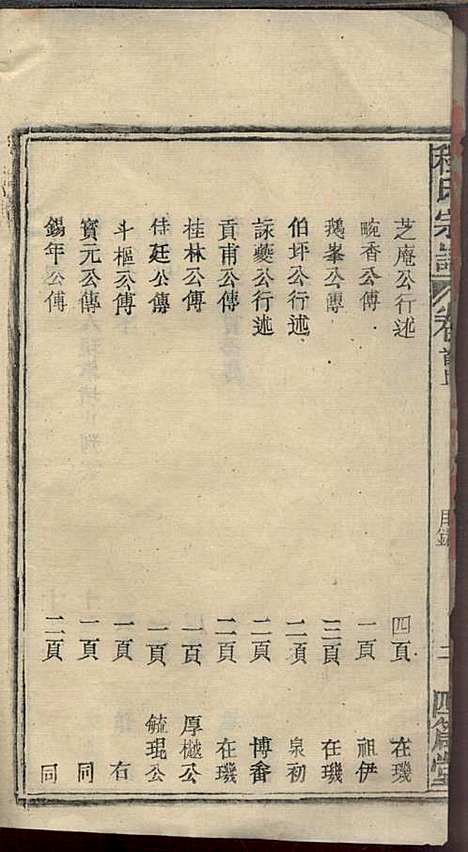 程氏宗譜 卷首
目錄 二 四箴堂
芝庵公行述 四頁 在璣
畹香公傳 一頁 祖伊
鵝峯公傳 三頁 在璣
伯坪公行述 二頁 泉初
詠夔公行述 二頁 博畬
貢甫公傳 二頁 在璣
桂林公傳 一頁 厚樾公
侍廷公傳 一頁 毓琨公
斗樞公傳 一頁 右
寳元公傳 一頁 同
錫年公傳 二頁 同